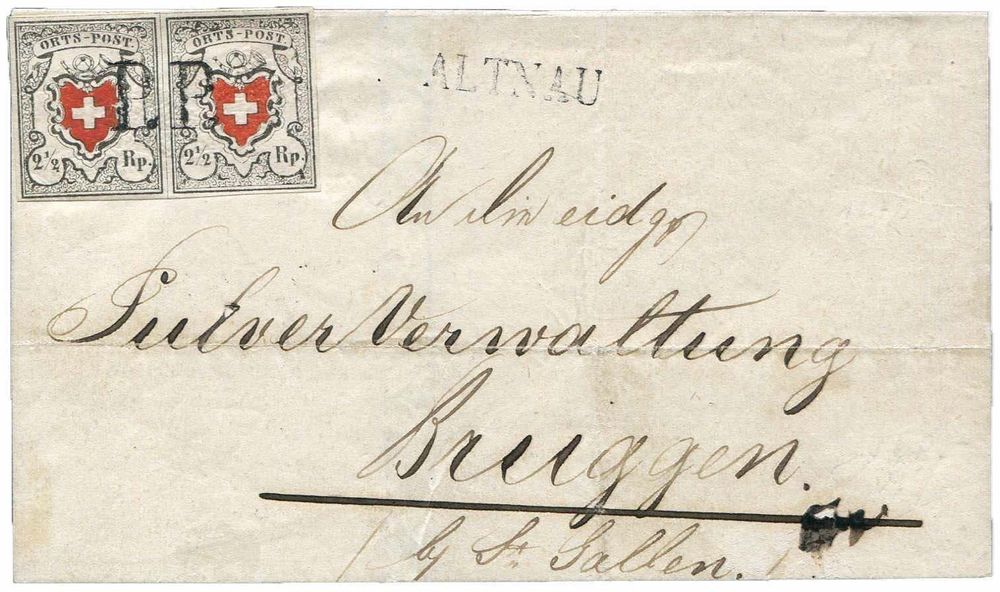 ORTS-POST. ORTS-POST.
P.P.
2½ Rp. 2½ Rp.
ALTNAU
An die eidgs
Pulver Verwaltung
Bruggen.
/ by St. Gallen. /